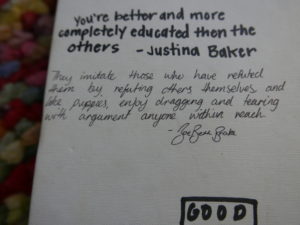 you're better and more
completely educated then the
others - Justina Baker
They imitate those who have refuted
them by refuting others themselves, and
like puppies, enjoy dragging and tearing
with argument anyone within reach.
- Baker
GOOD